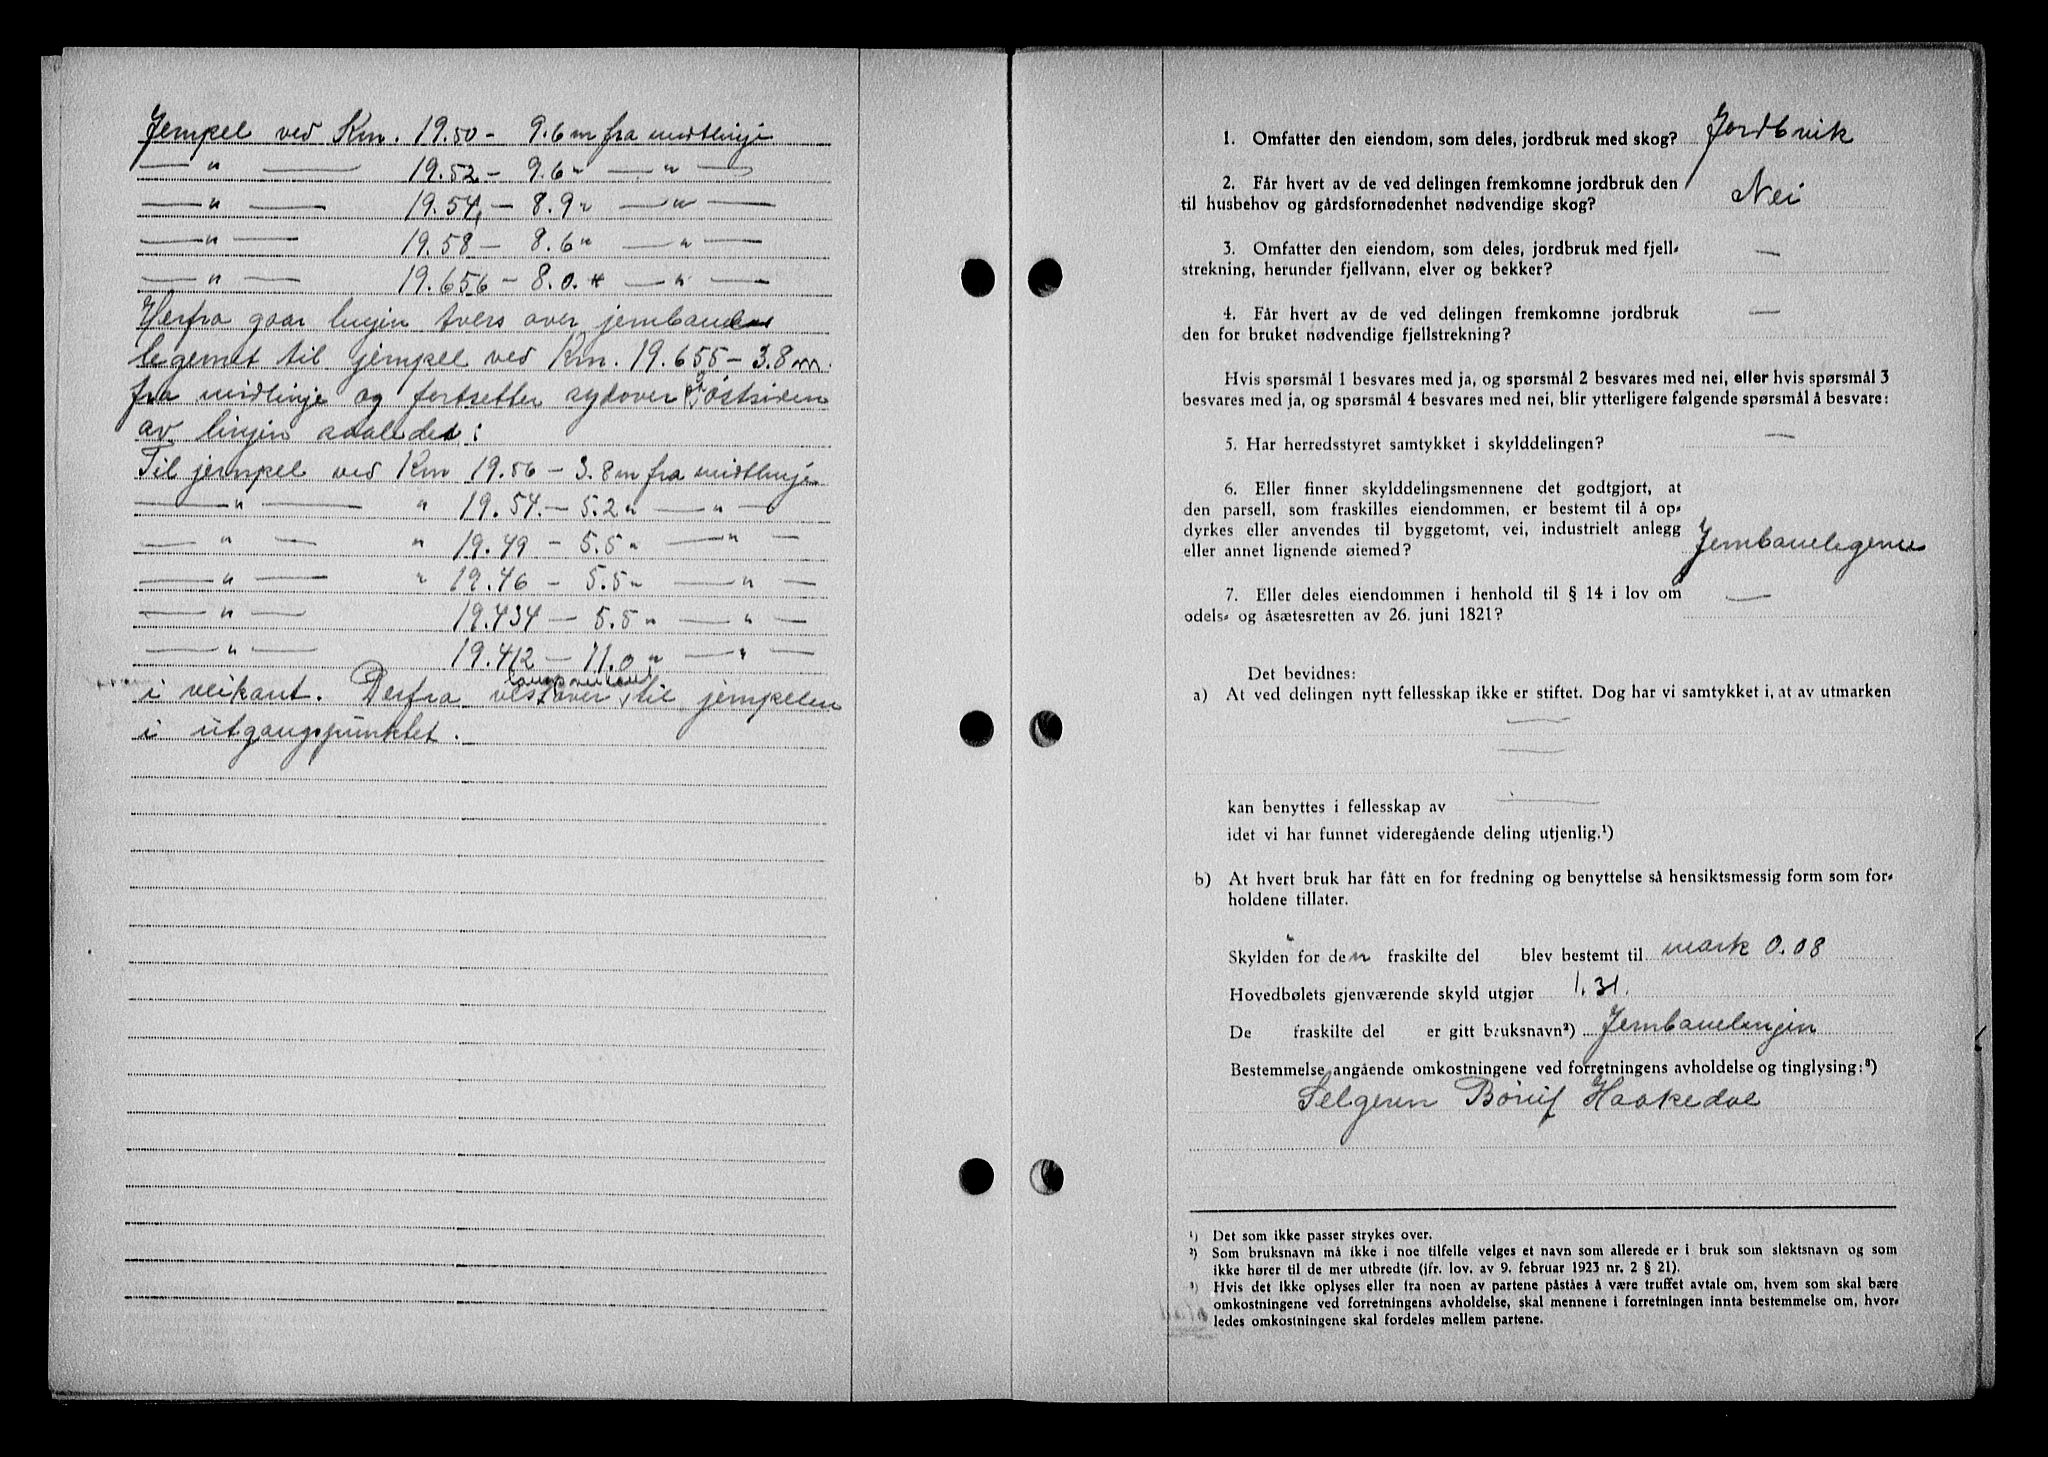 Jernpel ved Km. 19.50 - 9.6 m fra midtlinje
— " — 19.52 - 9.6 " — " —
— " — 19.54 - 8.9 " — " —
— " — 19.58 - 8.6 " — " —
— " — 19.656 - 8.0. " — " —
Herfra gaar linjen tvers over jernbane
legemet til jernpel ved Km. 19.655 - 3.8 m.
fra midlinje og fortsetter sydover på östsiden
av linjen saaledes:
Til jernpel ved Km 19.56 - 3.8 m fra midtlinje
— " — " 19.54. - 5.2 " — " —
— " — " 19.49 - 5.5 " — " —
— " — " 19.46 - 5.5 " — " —
— " — 19.434 - 5.5 " — " —
— " — 19.412 - 11.0 " — " —
langs veikant
i veikant. Derfra vestover, til jernpelen
i utgangspunktet.
1. Omfatter den eiendom, som deles, jordbruk med skog? Jordbruk
2. Får hvert av de ved delingen fremkomne jordbruk den
til husbehov og gårdsfornødenhet nødvendige skog? Nei
3. Omfatter den eiendom, som deles, jordbruk med fjell-
strekning, herunder fjellvann, elver og bekker? —
4. Får hvert av de ved delingen fremkomne jordbruk
den for bruket nødvendige fjellstrekning? —
Hvis spørsmål 1 besvares med ja, og spørsmål 2 besvares med nei, eller hvis spørsmål 3
besvares med ja, og spørsmål 4 besvares med nei, blir ytterligere følgende spørsmål å besvare:
5. Har herredsstyret samtykket i skylddelingen? —
6. Eller finner skylddelingsmennene det godtgjort, at
den parsell, som fraskilles eiendommen, er bestemt til å op-
dyrkes eller anvendes til byggetomt, vei, industrielt anlegg
eller annet lignende øiemed? Jernbanelegeme
7. Eller deles eiendommen i henhold til § 14 i lov om
odels- og åsætesretten av 26. juni 1821? —
Det bevidnes:
a) At ved delingen nytt fellesskap ikke er stiftet. Dog har vi samtykket i, at av utmarken
—
—
kan benyttes i fellesskap av —
idet vi har funnet videregående deling utjenlig.¹)
b) At hvert bruk har fått en for fredning og benyttelse så hensiktsmessig form som for-
holdene tillater.
Skylden for den fraskilte del blev bestemt til mark 0.08
Hovedbølets gjenværende skyld utgjør 1.31.
De fraskilte del er gitt bruksnavn²) Jernbanelinjen
Bestemmelse angående omkostningene ved forretningens avholdelse og tinglysing:³)
Selgeren
¹) Det som ikke passer strykes over.
²) Som bruksnavn må ikke i noe tilfelle velges et navn som allerede er i bruk som slektsnavn og som
ikke hører til de mer utbredte (jfr. lov. av 9. februar 1923 nr. 2 § 21).
³) Hvis det ikke oplyses eller fra noen av partene påståes å være truffet avtale om, hvem som skal bære
omkostningene ved forretningens avholdelse, skal mennene i forretningen innta bestemmelse om, hvor-
ledes omkostningene skal fordeles mellem partene.